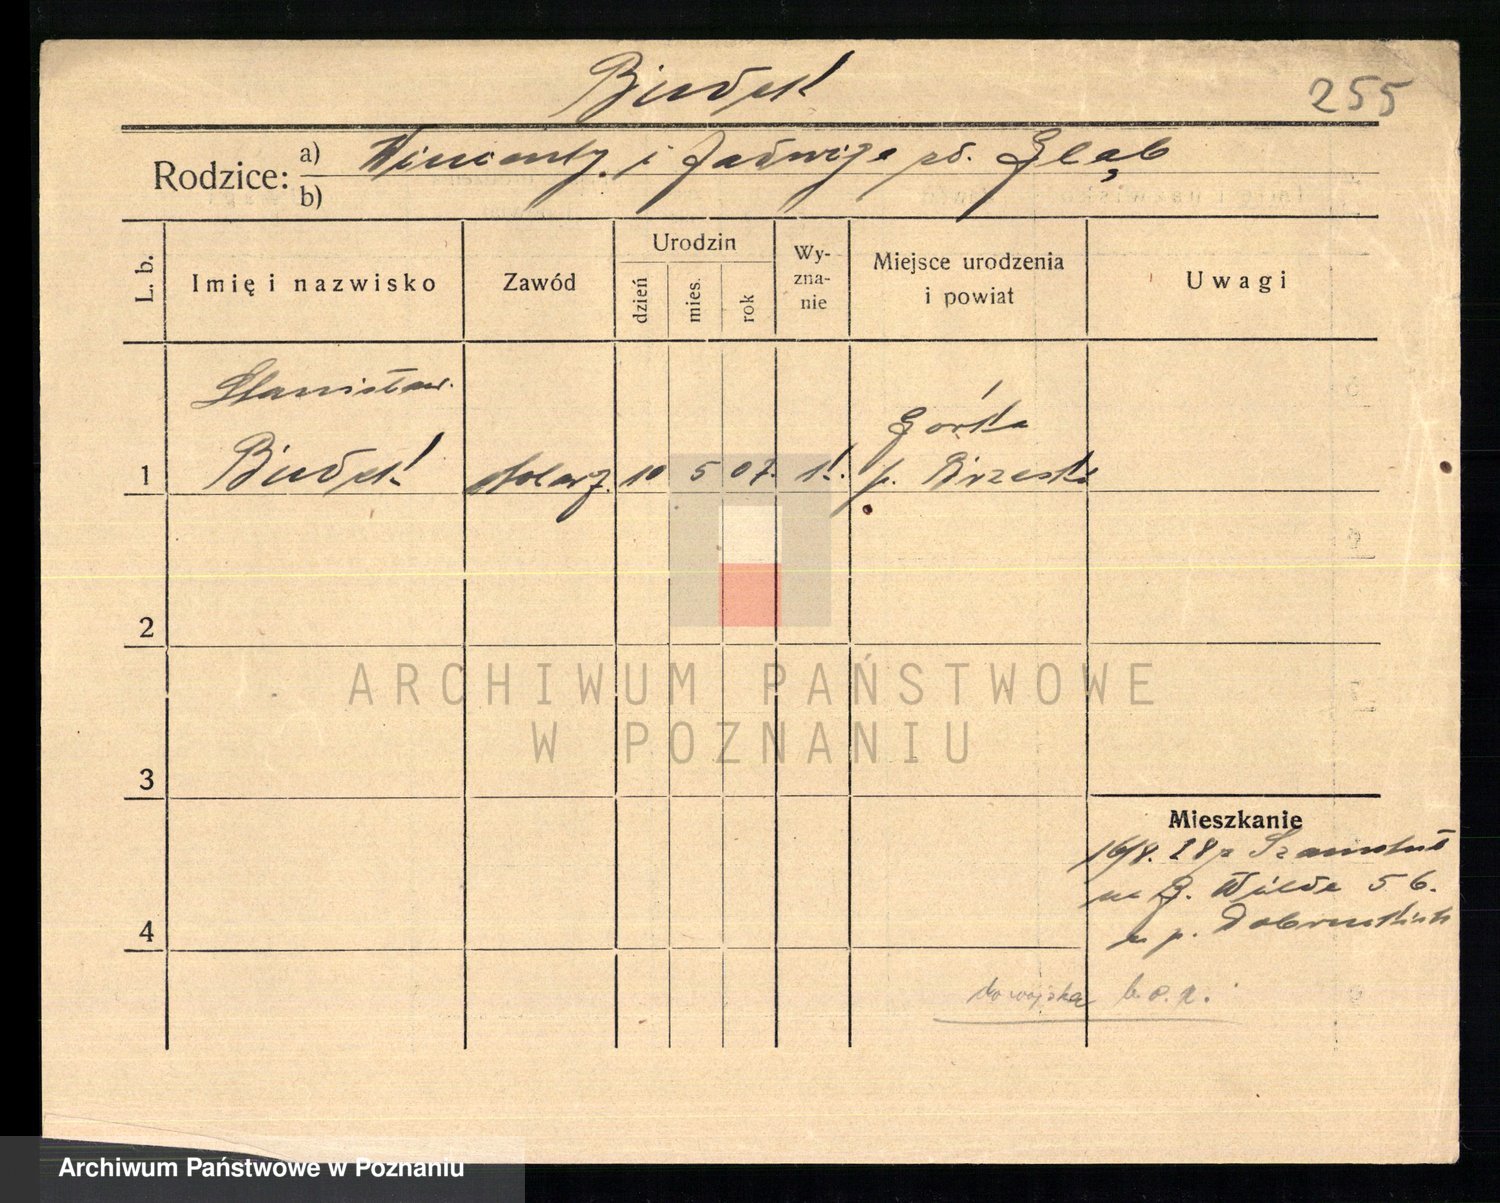 Biudek
255
Rodzice:
a) Wincenty i Jadwiga zd. Głąb
b)
L. b.
Imię i nazwisko
Zawód
Urodzin
dzień
mies.
rok
Wy-
zna-
nie
Miejsce urodzenia
i powiat
Uwagi
Stanisław
Górka
1 Biudek stolarz 10 5 07. rk. p. Brzesko
2
3
4
Mieszkanie
16/8. 28 z Szamotuł
na G. Wilda 56.
u p.
do wojska
ARCHIWUM PAŃSTWOWE
W POZNANIU
Archiwum Państwowe w Poznaniu